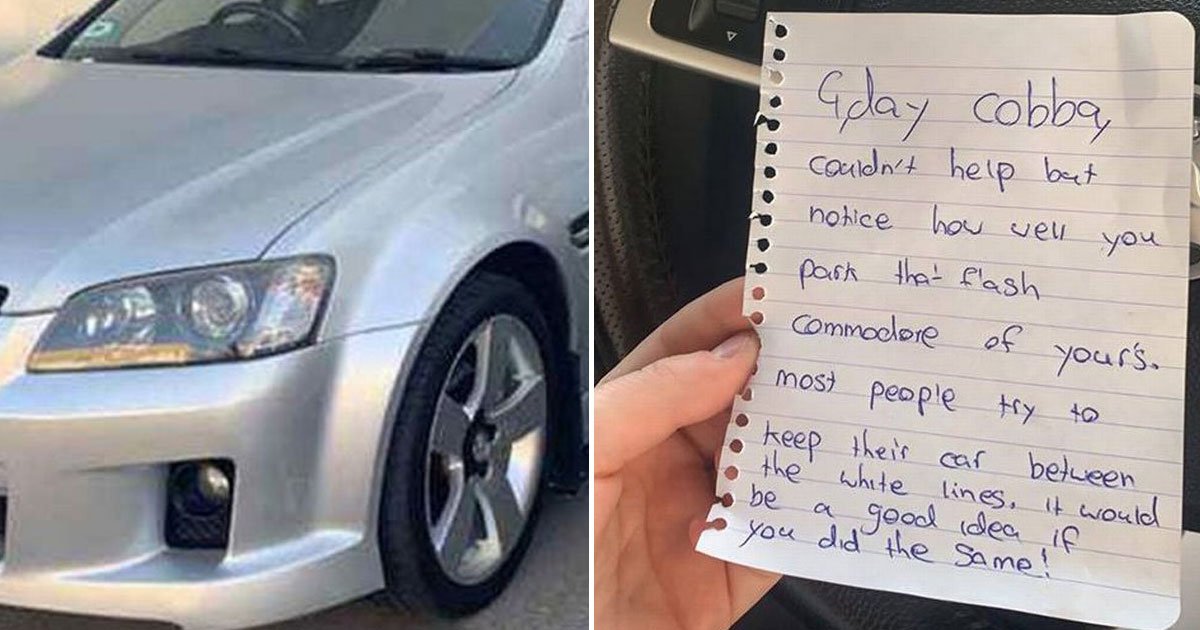 G,day cobba,
couldn't help but
notice how well you
park that flash
commodore of your's.
most people try to
keep their car between
the white lines. it would
be a good idea if
you did the same!